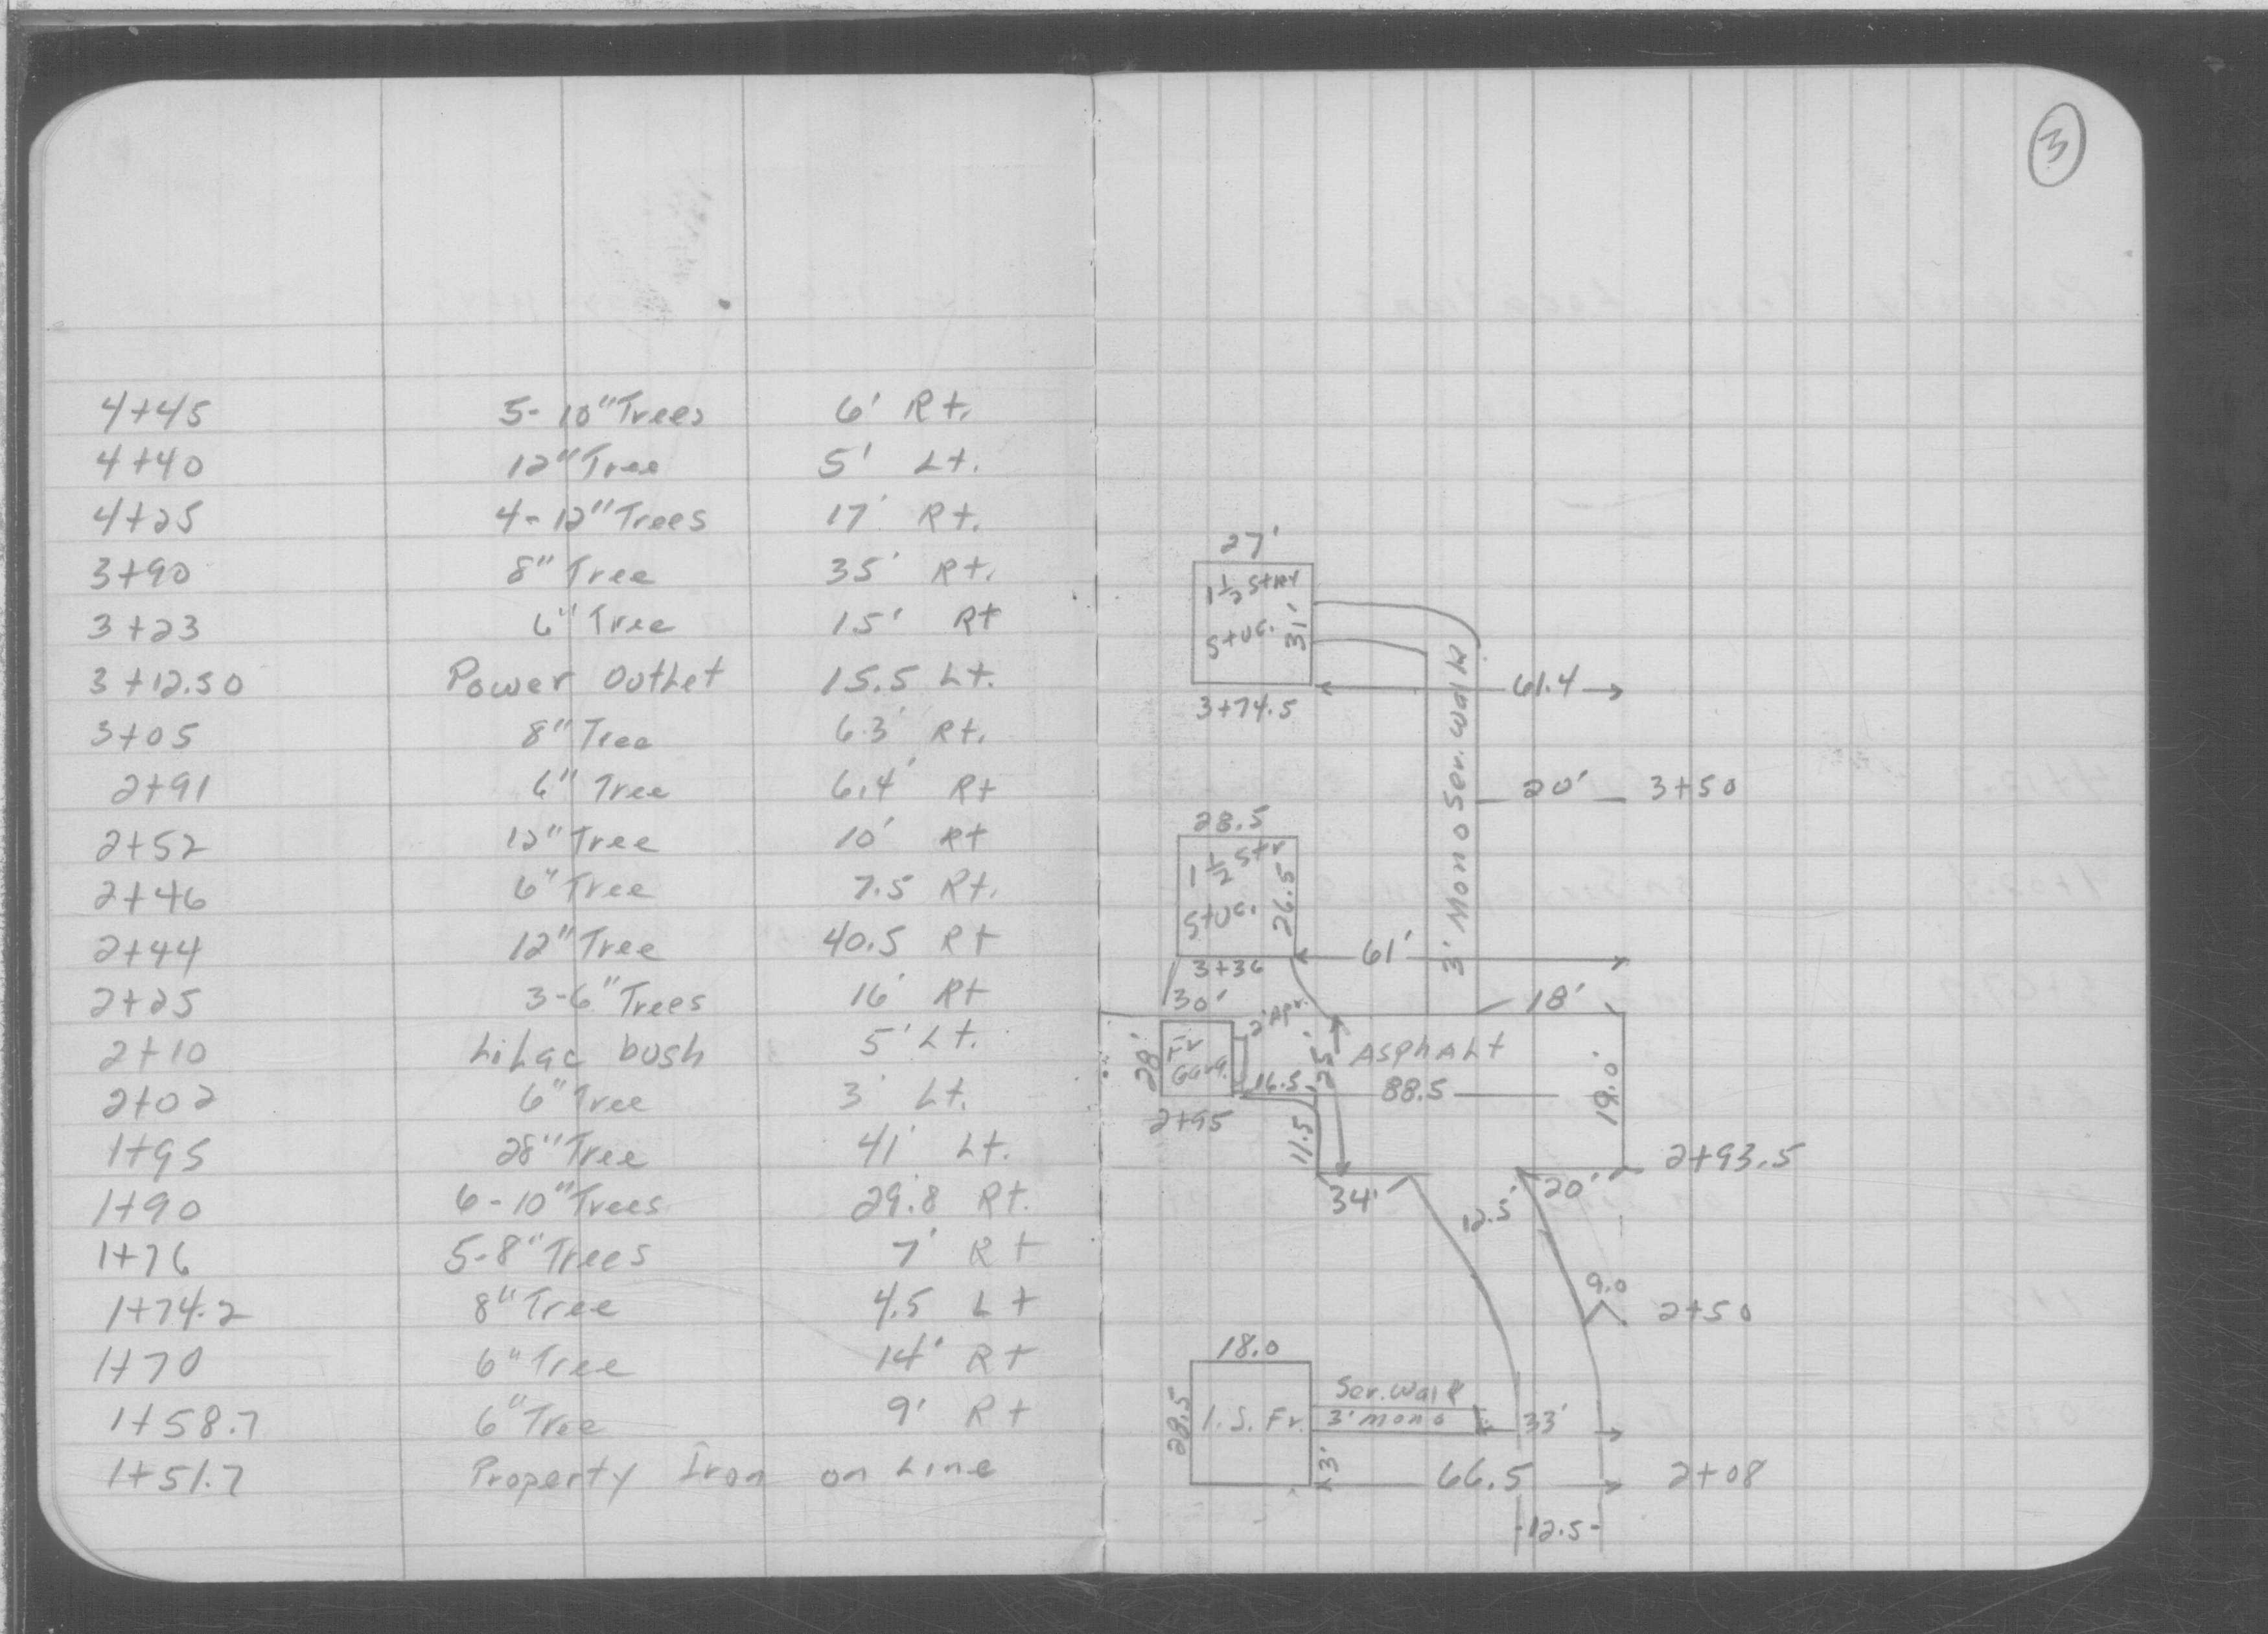 3
4+45 5-10" Trees 6' Rt.
4+40 12" Tree 5' Lt.
4+25 4-12" Trees 17' Rt.
3+90 8" Tree 35' Rt.
3+23 6" Tree 15' Rt
3+12.50 Power Outlet 15.5 Lt.
3+05 8" Tree 6.3' Rt.
2+91 6" Tree 6.4' Rt
2+52 12" Tree 10' Rt
2+46 6" Tree 7.5 Rt.
2+44 12" Tree 40.5 Rt
2+25 3-6" Trees 16' Rt
2+10 Lilac bush 5' Lt.
2+02 6" Tree 3' Lt.
1+95 28" Tree 41' Lt.
1+90 6-10" Trees 29.8 Rt.
1+76 5-8" Trees 7' Rt
1+74.2 8" Tree 4.5 Lt
1+70 6" Tree 14' Rt
1+58.7 6" Tree 9' Rt
1+51.7 Property Iron on Line
27'
1½ Stry
Stuc.
31'
3+74.5
61.4
3' Mono Ser. Walk
20' 3+50
28.5
1½ Str
Stuc.
26.5
3+36
61'
30'
2' Apr.
18'
28'
Fr
Garg.
16.5
25'
Asphalt
88.5
19.0'
2+95
11.5
2+93.5
34'
12.5'
20'
9.0
2+50
18.0
28.5
1. S. Fr.
Ser. Walk
3' mono
33'
3'
66.5
2+08
12.5